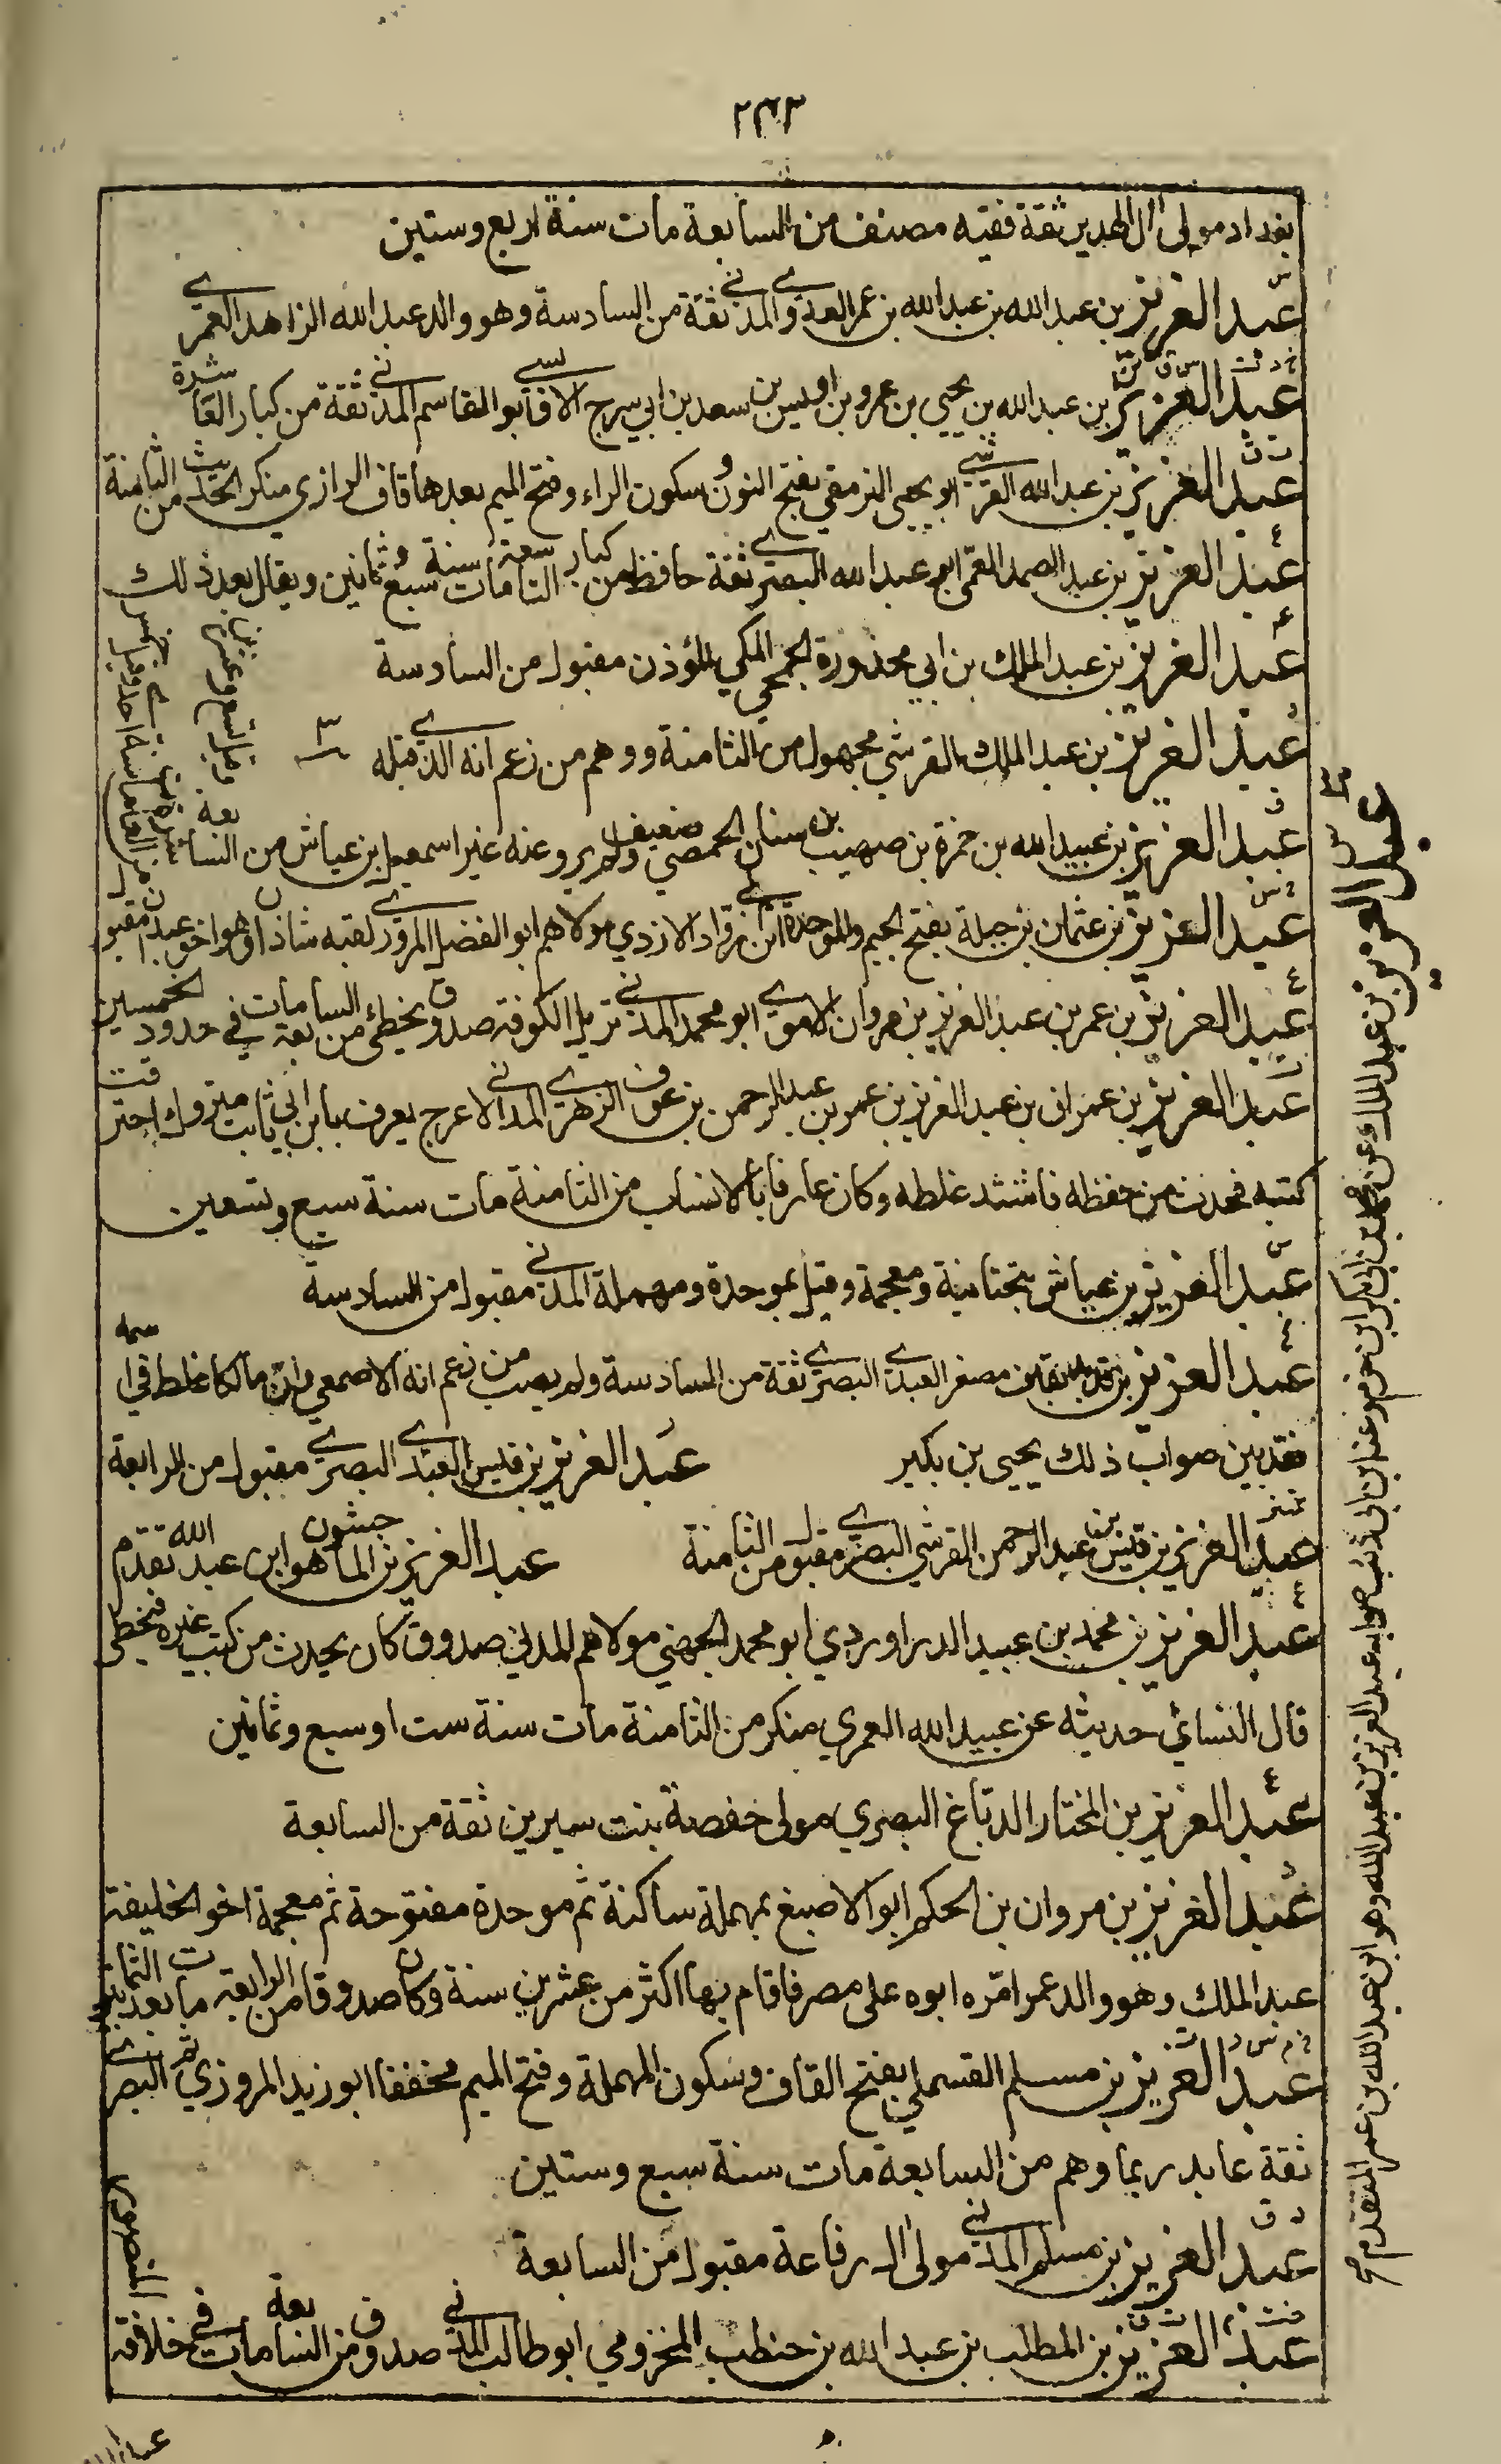 ٢٤٣
بغداد مولى آل الهدير ثقة فقيه مصنف من السابعة مات سنة اربع وستين
عبد العزيز بن عبد الله بن عبد الله بن عمر العدوي المدني ثقة من السادسة وهو والد عبد الله الزاهد العمري
عبد العزيز بن عبد الله بن يحيى بن عمرو بن اويس بن سعد بن ابي سرح الاويسي ابو القاسم المدني ثقة من كبار العاشرة
عبد العزيز بن عبد الله القرشي ابو يحيى النرمقي بفتح النون وسكون الراء وفتح الميم بعدها قاف الرازي منكر الحديث من الثامنة
عبد العزيز بن عبد الصمد العمي ابو عبد الله البصري ثقة حافظ من كبار التاسعة مات سنة سبع وثمانين ويقال بعد ذلك
عبد العزيز بن عبد الملك بن ابي محذورة الجمحي المكي المؤذن مقبول من السادسة
عبد العزيز بن عبد الملك القرشي مجهول من الثامنة ووهم من زعم انه الذي قبله
عبد العزيز بن عبيد الله بن حمزة بن صهيب بن سنان الحمصي ضعيف ولم يرو عنه غير اسمعيل بن عياش من السابعة
عبد العزيز بن عثمان بن جبلة بفتح الجيم والموحدة ابن ابي رواد الازدي مولاهم ابو الفضل المروزي لقبه شاذان وهو اخو عبدان مقبول
من العاشرة مات سنة احدى وعشرين
عبد العزيز بن عمر بن عبد العزيز بن مروان الاموي ابو محمد المدني نزيل الكوفة صدوق يخطئ من السابعة مات في حدود الخمسين
عبد العزيز بن عمران بن عبد العزيز بن عمر بن عبد الرحمن بن عوف الزهري المدني الاعرج يعرف بابن ابي ثابت متروك احترقت
كتبه فحدث من حفظه فاشتد غلطه وكان عارفا بالانساب من الثامنة مات سنة سبع وتسعين
عبد العزيز بن عياش بتحتانية ومعجمة وقيل بموحدة ومهملة المدني مقبول من السادسة
عبد العزيز بن قرير بقافين مصغر العبدي البصري ثقة من السادسة ولم يصب من زعم انه الاصمعي وان مالكا غلط في اسمه
فقد بين صواب ذلك يحيى بن بكير
عبد العزيز بن قيس العبدي البصري مقبول من الرابعة
عبد العزيز بن قيس بن عبد الرحمن القرشي البصري مقبول من الثامنة
عبد العزيز بن الماجشون هو ابن عبد الله تقدم
عبد العزيز بن محمد بن عبيد الدراوردي ابو محمد الجهني مولاهم المدني صدوق كان يحدث من كتب غيره فيخطئ
قال النسائي حديثه عن عبيد الله العمري منكر من الثامنة مات سنة ست او سبع وثمانين
عبد العزيز بن المختار الدباغ البصري مولى حفصة بنت سيرين ثقة من السابعة
عبد العزيز بن مروان بن الحكم ابو الاصبغ بمهملة ساكنة ثم موحدة مفتوحة ثم معجمة اخو الخليفة
عبد الملك وهو والد عمر امّره ابوه على مصر فاقام بها اكثر من عشرين سنة وكان صدوقا من الرابعة مات بعد الثمانين
عبد العزيز بن مسلم القسملي بفتح القاف وسكون المهملة وفتح الميم مخففا ابو زيد المروزي ثم البصري
ثقة عابد ربما وهم من السابعة مات سنة سبع وستين
عبد العزيز بن مسلم المدني مولى ال رفاعة مقبول من السابعة
عبد العزيز بن المطلب بن عبد الله بن حنطب المخزومي ابو طالب المدني صدوق من السابعة مات في خلافة
المنصور
عبد العزيز بن عبد الملك وعن محمد بن ابي بكر ابن حزم وعنه ابن ابي ذئب صوابه عبد العزيز بن عبد الله وهو ابن عبد الله بن عمر المتقدم